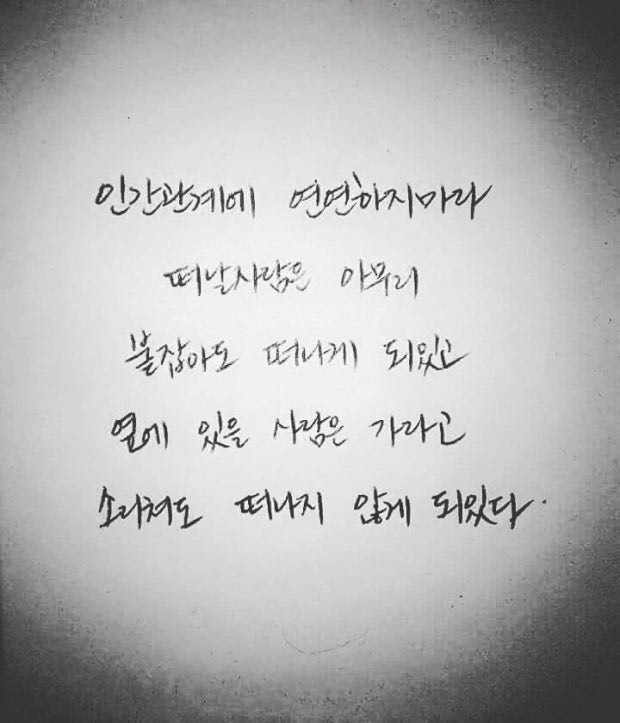 인간관계에 연연하지마라
떠날사람은 아무리
붙잡아도 떠나게 되있고
옆에 있을 사람은 가라고
소리쳐도 떠나지 않게 되있다.